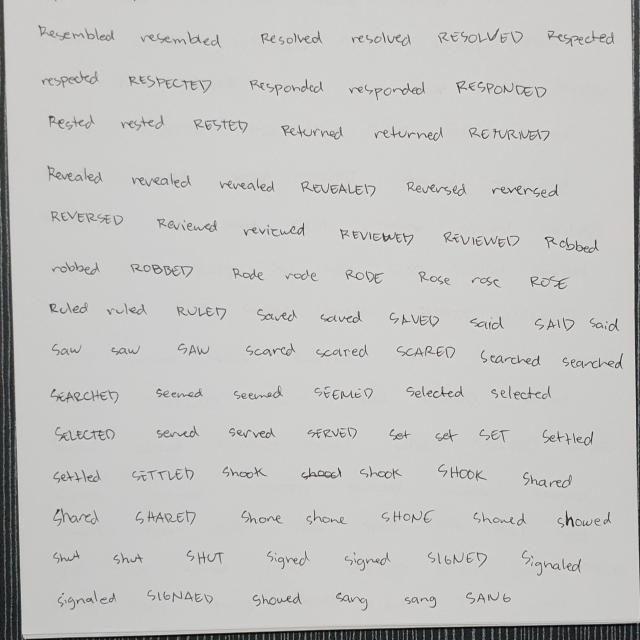 Resembled resembled Resolved resolved RESOLVED Respected
respected RESPECTED Responded responded RESPONDED
Rested rested RESTED Returned returned RETURNED
Revealed revealed revealed REVEALED Reversed reversed
REVERSED Reviewed reviewed REVIEWED REVIEWED Robbed
robbed ROBBED Rode rode RODE Rose rose ROSE
Ruled ruled RULED Saved saved SAVED said SAID said
Saw saw SAW scared scared SCARED Searched searched
SEARCHED seemed seemed SEEMED Selected selected
SELECTED served served SERVED Set set SET Settled
settled SETTLED Shook shook SHOOK Shared
Shared SHARED Shone shone SHONE Showed showed
Shut shut SHUT Signed signed SIGNED Signaled
signaled SIGNAED Showed sang sang SANG